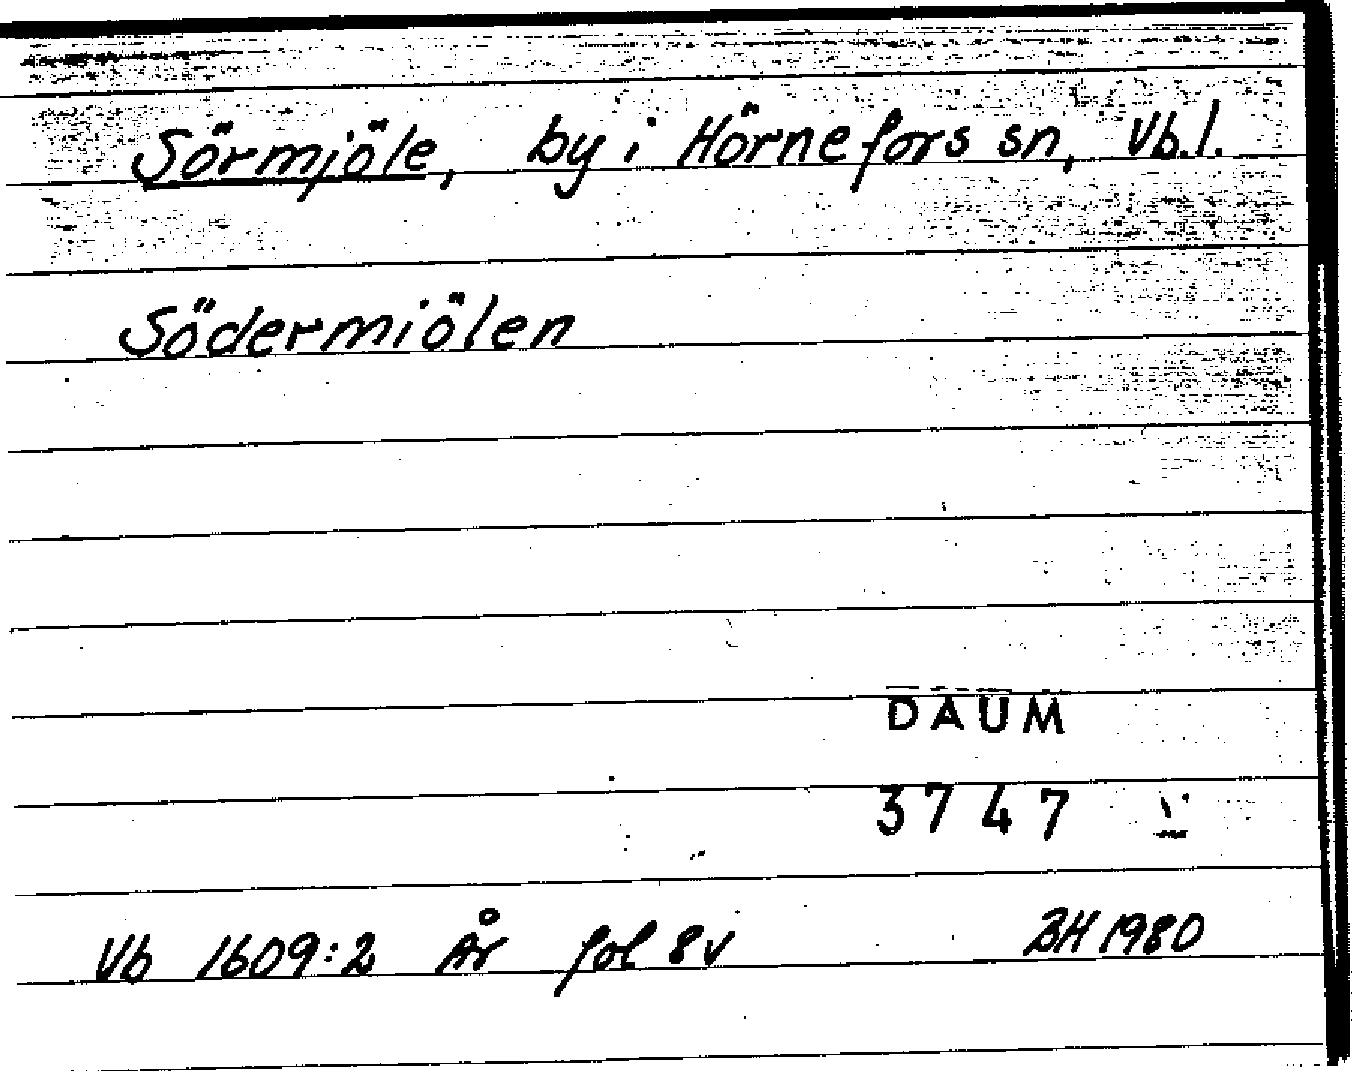 Sörmjöle, by i Hörnefors sn, Vb.l.
Södermiölen
DAUM
3747
Vb 1609:2 År fol 8v BH 1980